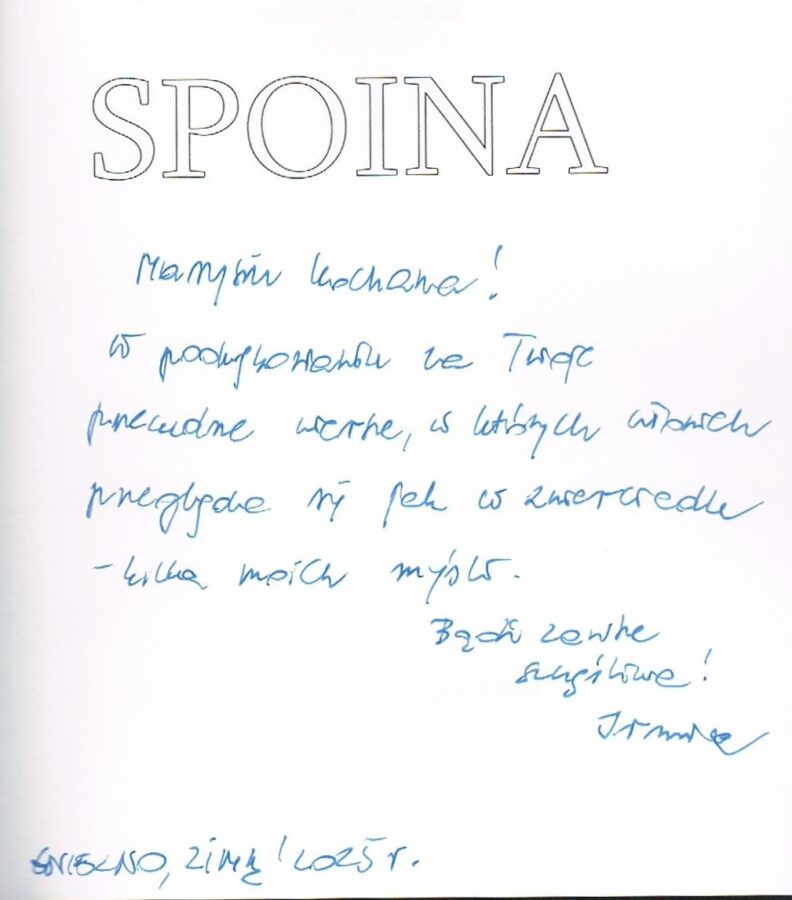 SPOINA
Maryśiu kochana!
W podziękowaniu za Twoje
przecudne wiersze, w których człowiek
przegląda się jak w zwierciadle
- kilka moich myśli.
Bądź zawsze
szczęśliwa!
GNIEZNO, zimą 2025 r.